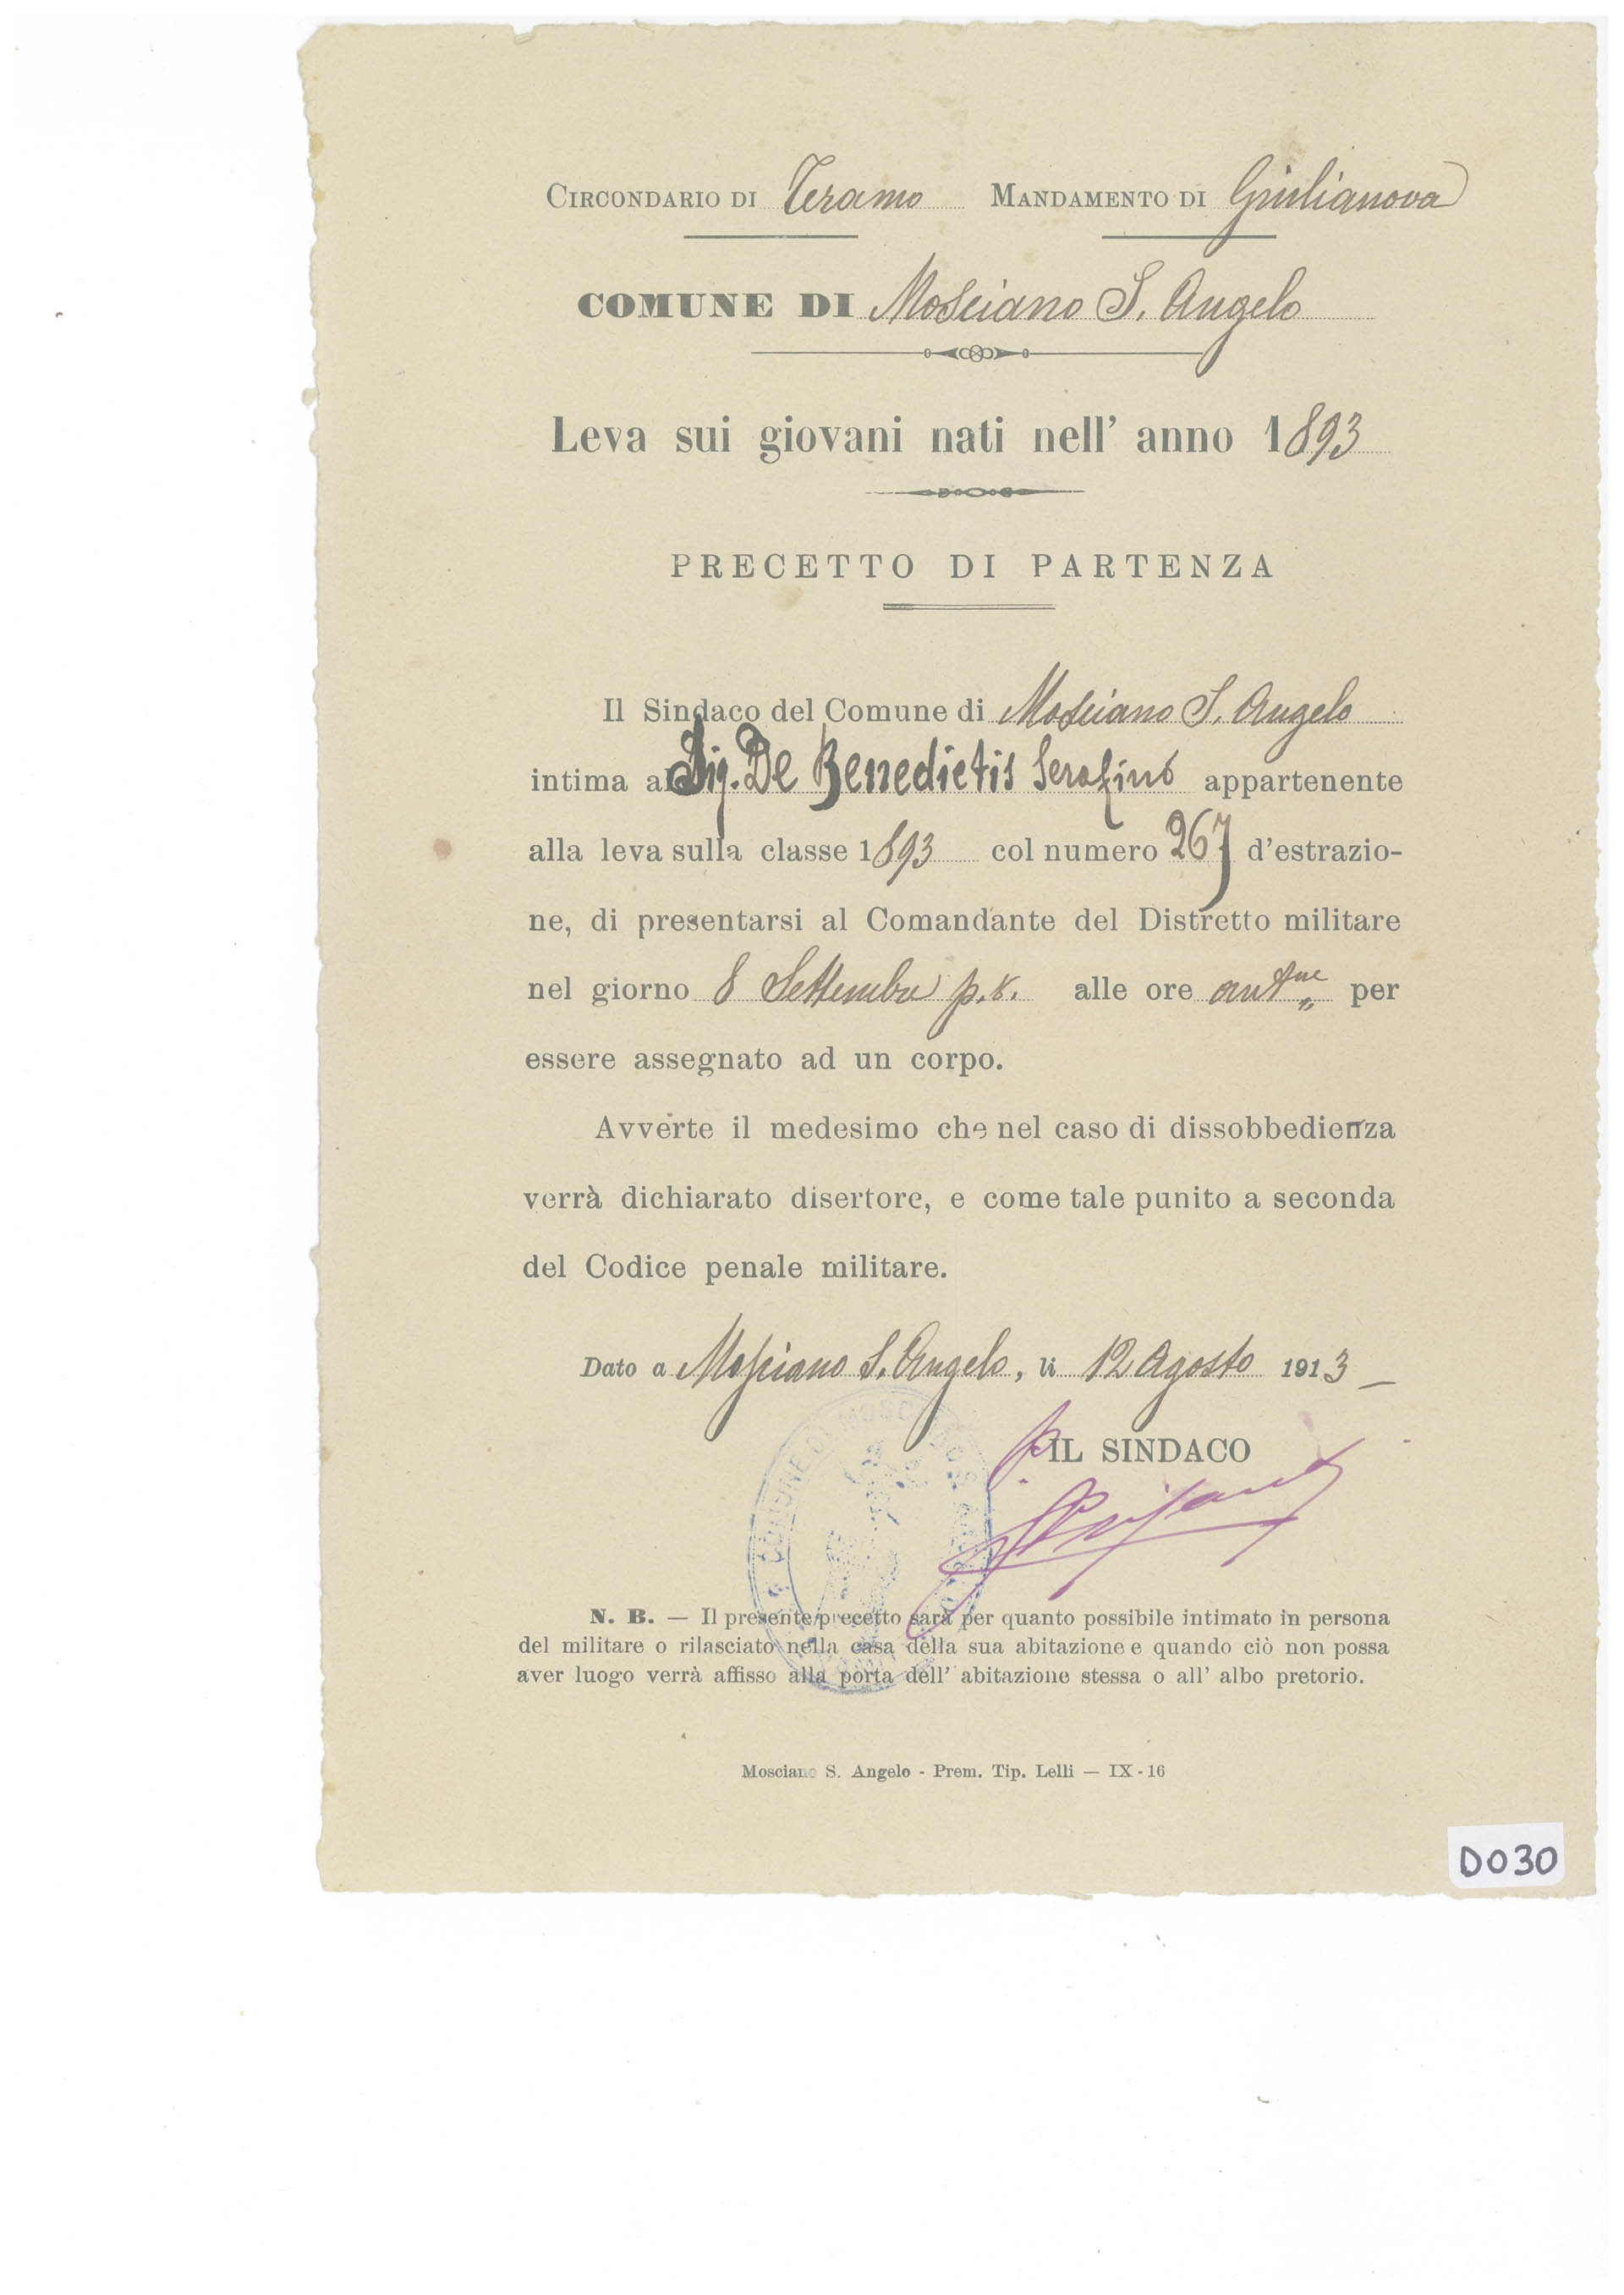 CIRCONDARIO DI Teramo MANDAMENTO DI Giulianova
COMUNE DI Mosciano S. Angelo
Leva sui giovani nati nell' anno 1893
PRECETTO DI PARTENZA
Il Sindaco del Comune di Mosciano S. Angelo
intima al Sig. De Benedictis Serafino appartenente
alla leva sulla classe 1893 col numero 267 d'estrazio-
ne, di presentarsi al Comandante del Distretto militare
nel giorno 8 Settembre p.v. alle ore antne per
essere assegnato ad un corpo.
Avverte il medesimo che nel caso di dissobbedienza
verrà dichiarato disertore, e come tale punito a seconda
del Codice penale militare.
Dato a Mosciano S. Angelo, li 12 Agosto 1913
p. IL SINDACO
N. B. — Il presente precetto sarà per quanto possibile intimato in persona
del militare o rilasciato nella casa della sua abitazione e quando ciò non possa
aver luogo verrà affisso alla porta dell' abitazione stessa o all' albo pretorio.
Mosciano S. Angelo - Prem. Tip. Lelli — IX - 16
D030